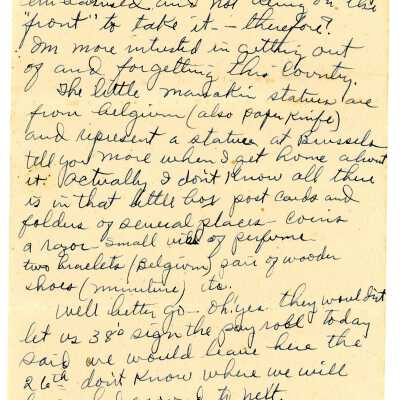 and not being on the
"front" to take it - - therefore?
I'm more intrested in getting out
of and forgetting this country.
The little manakin statues are
from belgium (also paper knife)
and represent a statue at Brussels
tell you more when I get home about
it. Actually I don't know all there
is in that little box post cards and
folders of several places - coins
a razor - small vial of perfume
two bracelets (Belgium) pair of wooden
shoes (miniture) etc.
Well better go - Oh! yes. they wouldn't
let us 38's sign the pay roll today
said we would leave here the
26th don't know where we will
to next.